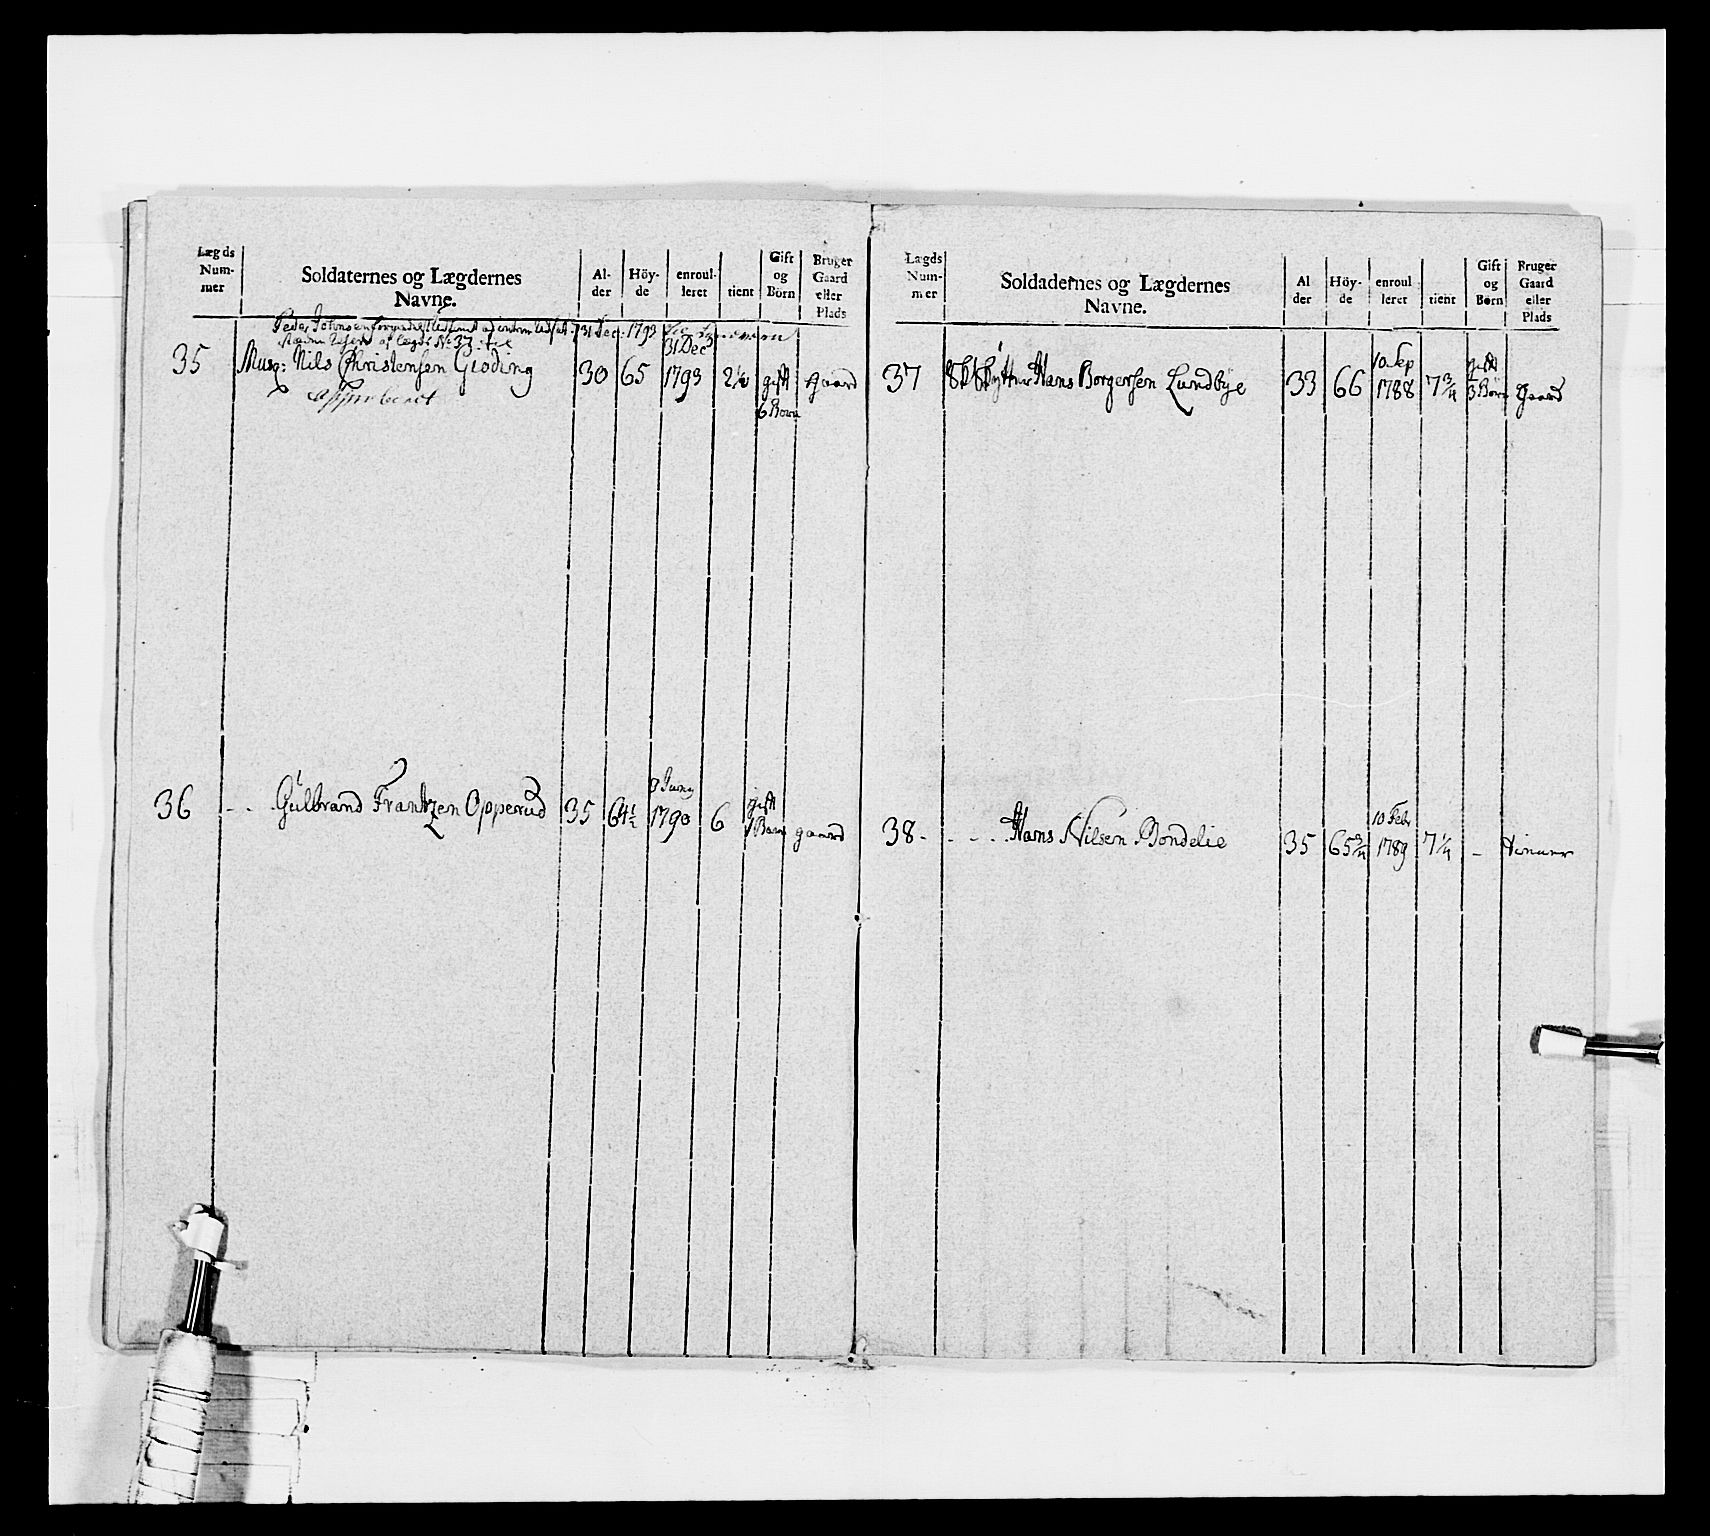 Lægds Num- mer
Soldaternes og Lægdernes Navne.
Al- der
Höy- de
enroul- leret
tient
Gift og Börn
Bruger Gaard eller Plads
31 Dec: 1793
af Lægd No 37
35 Musq: Nils Christensen Gloding 30 65 31 Dec 1793 2½ gift 6 Börn gaard
36 - - Gulbrand Frantzen Opperud 35 64½ 3 Juny 1790 6 gift 1 Barn gaard
Lægds Num- mer
Soldadernes og Lægdernes Navne.
Al der
Höy- de
enroul leret
tient
Gift og Börn
Bruger Gaard eller Plads
37 Hans Borgersen Lundbye 33 66 10 Sep 1788 7¾ gift 3 Börn gaard
38 - - - - Hans Nilsen Bondelie 35 65¾ 10 Febr 1789 7¼ - tienner